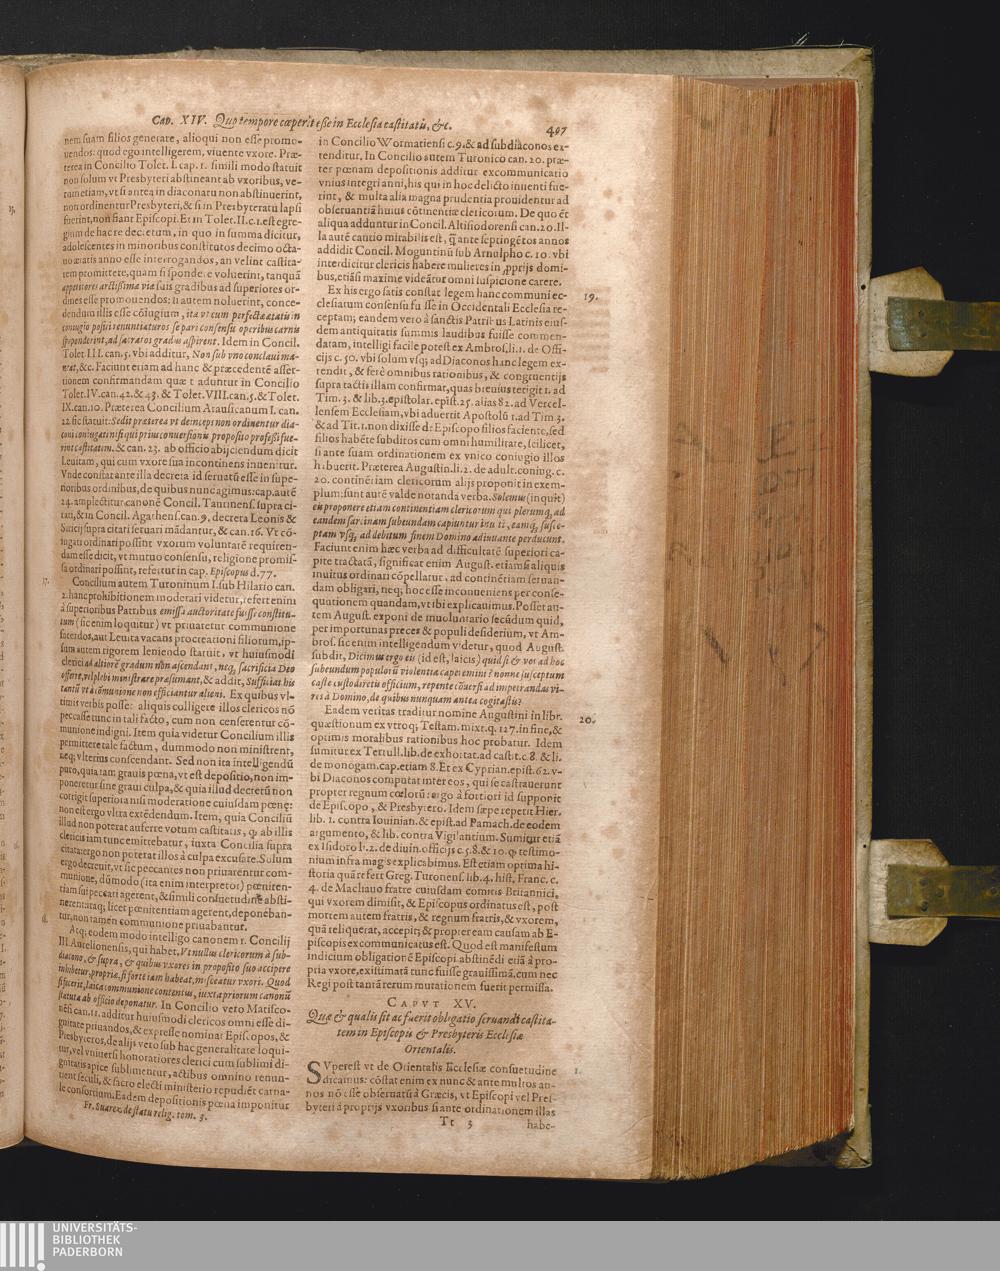 Cap. XIV. Quo tempore cœperit esse in Ecclesia castitatis, &c.
407
nem suam filios generare, alioqui non esse promo-
uendos: quod ego intelligerem, viuente vxore. Præ-
terea in Concilio Tolet. I. cap. 1. simili modo statuit
non solum vt Presbyteri abstineant ab vxoribus, ve-
rum etiam, vt si antea in diaconatu non abstinuerint,
non ordinentur Presbyteri, & si in Presbyteratu lapsi
fuerint, non fiant Episcopi. Et in Tolet. II. c. 1. est egre-
gium de hac re decretum, in quo in summa dicitur,
adolescentes in minoribus constitutos decimo octa-
uo ætatis anno esse interrogandos, an velint castita-
tem promittere, quam si spondere voluerint, tanquã
appetitores arctissimæ viæ suis gradibus ad superiores or-
dines esse promouendos: ii autem noluerint, conce-
dendum illis esse cõiugium, ita vt cum perfectæ ætatis in
coniugio positi renuntiaturos se pari consensu operibus carnis
spoponderint, ad sacratos gradus aspirent. Idem in Concil.
Tolet. III. can. 5. vbi additur, Non sub vno conclaui ma-
neat, &c. Faciunt etiam ad hanc & præcedentẽ asser-
tionem confirmandam quæ t aduntur in Concilio
Tolet. IV. can. 42. & 43. & Tolet. VIII. can. 5. & Tolet.
IX. can. 10. Præterea Concilium Arausicanum I. can.
22. sic statuit: Sedit præterea vt deinceps non ordinentur dia-
coni coniugati nisi qui prius conuersionis proposito professi fue-
rint castitatem. & can. 23. ab officio abijciendum dicit
Leuitam, qui cum vxore sua incontinens inuenitur.
Vnde constat ante illa decreta id seruatũ esse in supe-
rioribus ordinibus, de quibus nunc agimus: cap. autẽ
24. amplectitur canonẽ Concil. Taurinens. supra ci-
tati, & in Concil. Agathens. can. 9. decreta Leonis &
Siricij supra citati seruari mãdantur, & can. 16. Vt cõ-
iugati ordinari possint vxorum voluntatẽ requiren-
dam esse dicit, vt mutuo consensu, religione promis-
sa ordinari possint, refertur in cap. Episcopus d. 77.
17.
Concilium autem Turoninum I. sub Hilario can.
2. hanc prohibitionem moderari videtur, refert enim
à superioribus Patribus emissa auctoritate fuisse constitu-
tum (sic enim loquitur) vt priuaretur communione
sacerdos, aut Leuita vacans procreationi filiorum, ip-
sum autem rigorem leniendo statuit, vt huiusmodi
clerici ad altiorẽ gradum non ascendant, neq; sacrificia Deo
offerre, vel plebi ministrare præsumant, & addit, Sufficiat his
tantũ vt à cõmunione non efficiantur alieni. Ex quibus vl-
timis verbis posset aliquis colligere illos clericos nõ
peccasse tunc in tali facto, cum non censerentur cõ-
munione indigni. Item quia videtur Concilium illis
permittere tale factum, dummodo non ministrent,
neq; vlterius conscendant. Sed non ita intelligendũ
puto, quia tam grauis pœna, vt est depositio, non im-
poneretur sine graui culpa, & quia illud decretũ non
corrigit superiora nisi moderatione cuiusdam pœnę:
non est ergo vltra extẽdendum. Item, quia Conciliũ
illud non poterat auferre votum castitatis, q̃ ab illis
clericis iam tunc emittebatur, iuxta Concilia supra
citata: ergo non poterat illos à culpa excusare. Solum
ergo decreuit, vt sic peccantes non priuarentur com-
munione, dũmodo (ita enim interpretor) pœniten-
tiam sui peccati agerent, & simili consuetudine absti-
nerent: atq; licet pœnitentiam agerent, deponeban-
tur, non tamen communione priuabantur.
18.
Atq; eodem modo intelligo canonem 1. Concilij
III. Aurelionensis, qui habet, Vt nullus clericorum à sub-
diacono, & supra, & quibus vxores in proposito suo accipere
inhibetur, propriæ, si forte iam habeat, misceatur vxori. Quod
si fecerit, laica communione contentus, iuxta priorum canonũ
statuta ab officio deponatur. In Concilio vero Matisco-
nensi can. 11. additur huiusmodi clericos omni esse di-
gnitate priuandos, & expresse nominat Episcopos, &
Presbyteros, de alijs vero sub hac generalitate loqui-
tur, vel vniuersi honoratiores clerici cum sublimi di-
gnitatis apice sublimentur, actibus omnino renun-
tient seculi, & sacro electi ministerio repudiẽt carna-
le consortium. Eadem depositionis pœna imponitur
Fr. Suarez de statu relig. tom. 3.
in Concilio Wormatiensi c. 9. & ad subdiaconos ex-
tenditur. In Concilio autem Turonico can. 20. præ-
ter pœnam depositionis additur excommunicatio
vnius integri anni, his qui in hoc delicto inuenti fue-
rint, & multa alia magna prudentia prouidentur ad
obseruantiã huius cõtinentiæ clericorum. De quo ẽt
aliqua adduntur in Concil. Altisiodorensi can. 20. Il-
la autẽ cautio mirabilis est, q̃ ante septingẽtos annos
addidit Concil. Moguntinũ sub Arnolpho c. 10. vbi
interdicitur clericis habere mulieres in proprijs domi-
bus, etiãsi maxime videãtur omni suspicione carere.
19.
Ex his ergo satis constat legem hanc communi ec-
clesiarum consensu fuisse in Occidentali Ecclesia re-
ceptam; eandem vero à sanctis Patribus Latinis eius-
dem antiquitatis summis laudibus fuisse commen-
datam, intelligi facile potest ex Ambros. li. 1. de Offi-
cijs c. 50. vbi solum vsq; ad Diaconos hanc legem ex-
tendit, & ferè omnibus rationibus, & congruentijs
supra tactis illam confirmat, quas breuius tetigit 1. ad
Tim. 3. & lib. 3. epistolar. epist. 25. alias 82. ad Vercel-
lensem Ecclesiam, vbi aduertit Apostolũ 1. ad Tim. 3.
& ad Tit. 1. non dixisse de Episcopo filios faciente, sed
filios habẽte subditos cum omni humilitate, scilicet,
si ante suam ordinationem ex vnico coniugio illos
habuerit. Præterea Augustin. li. 2. de adult. coniug. c.
20. continẽtiam clericorum alijs proponit in exem-
plum: sunt autẽ valde notanda verba. Solemus (inquit)
eis proponere etiam continentiam clericorum qui plerumq; ad
eandem sarcinam subeundam capiuntur inuiti, eamq; susce-
ptam vsq; ad debitum finem Domino adiuuante perducunt.
Faciunt enim hæc verba ad difficultatẽ superiori ca-
pite tractatã, significat enim August. etiamsi aliquis
inuitus ordinari cõpellatur, ad continẽtiam seruan-
dam obligari, neq; hoc esse inconueniens per conse-
quutionem quandam, vt ibi explicauimus. Posset au-
tem August. exponi de inuoluntario secũdum quid,
per importunas preces & populi desiderium, vt Am-
bros. sic enim intelligendum videtur, quod August.
subdit, Dicimus ergo eis (id est, laicis) quid si & vos ad hoc
subeundum populorũ violentia caperemini? nonne susceptum
caste custodiretis officium, repente cõuersi ad impetrandas vi-
res à Domino, de quibus nunquam antea cogitastis?
20.
Eadem veritas traditur nomine Augustini in libr.
quæstionum ex vtroq; Testam. mixt. q. 127. in fine, &
optimis moralibus rationibus hoc probatur. Idem
sumitur ex Tertull. lib. de exhortat. ad castit. c. 8. & li.
de monogam. cap. etiam 8. Et ex Cyprian. epist. 62. v-
bi Diaconos computat inter eos, qui se castrauerunt
propter regnum cœlorũ: ergo à fortiori id supponit
de Episcopo, & Presbytero. Idem sæpe repetit Hier.
lib. 1. contra Iouinian. & epist. ad Pamach. de eodem
argumento, & lib. contra Vigilantium. Sumitur etiã
ex Isidoro li. 2. de diuin. officijs c. 5. 8. & 10. q̃ testimo-
nium infra magis explicabimus. Est etiam optima hi-
storia quã refert Greg. Turonens. lib. 4. hist. Franc. c.
4. de Macliauo fratre cuiusdam comitis Britannici,
qui vxorem dimisit, & Episcopus ordinatus est, post
mortem autem fratris, & regnum fratris, & vxorem,
quã reliquerat, accepit; & propter eam causam ab E-
piscopis excommunicatus est. Quod est manifestum
indicium obligationẽ Episcopi abstinẽdi etiã à pro-
pria vxore, existimatã tunc fuisse grauissimã, cum nec
Regi post tantã rerum mutationem fuerit permissa.
CAPVT XV.
Quæ & qualis sit ac fuerit obligatio seruandi castita-
tem in Episcopis & Presbyteris Ecclesiæ
Orientalis.
1.
SVperest vt de Orientalis Ecclesiæ consuetudine
dicamus: cõstat enim ex nunc & ante multos an-
nos nõ esse obseruatũ à Græcis, vt Episcopi vel Pres-
byteri à proprijs vxoribus si ante ordinationem illas
Tt 3
habe-
UNIVERSITÄTS-
BIBLIOTHEK
PADERBORN